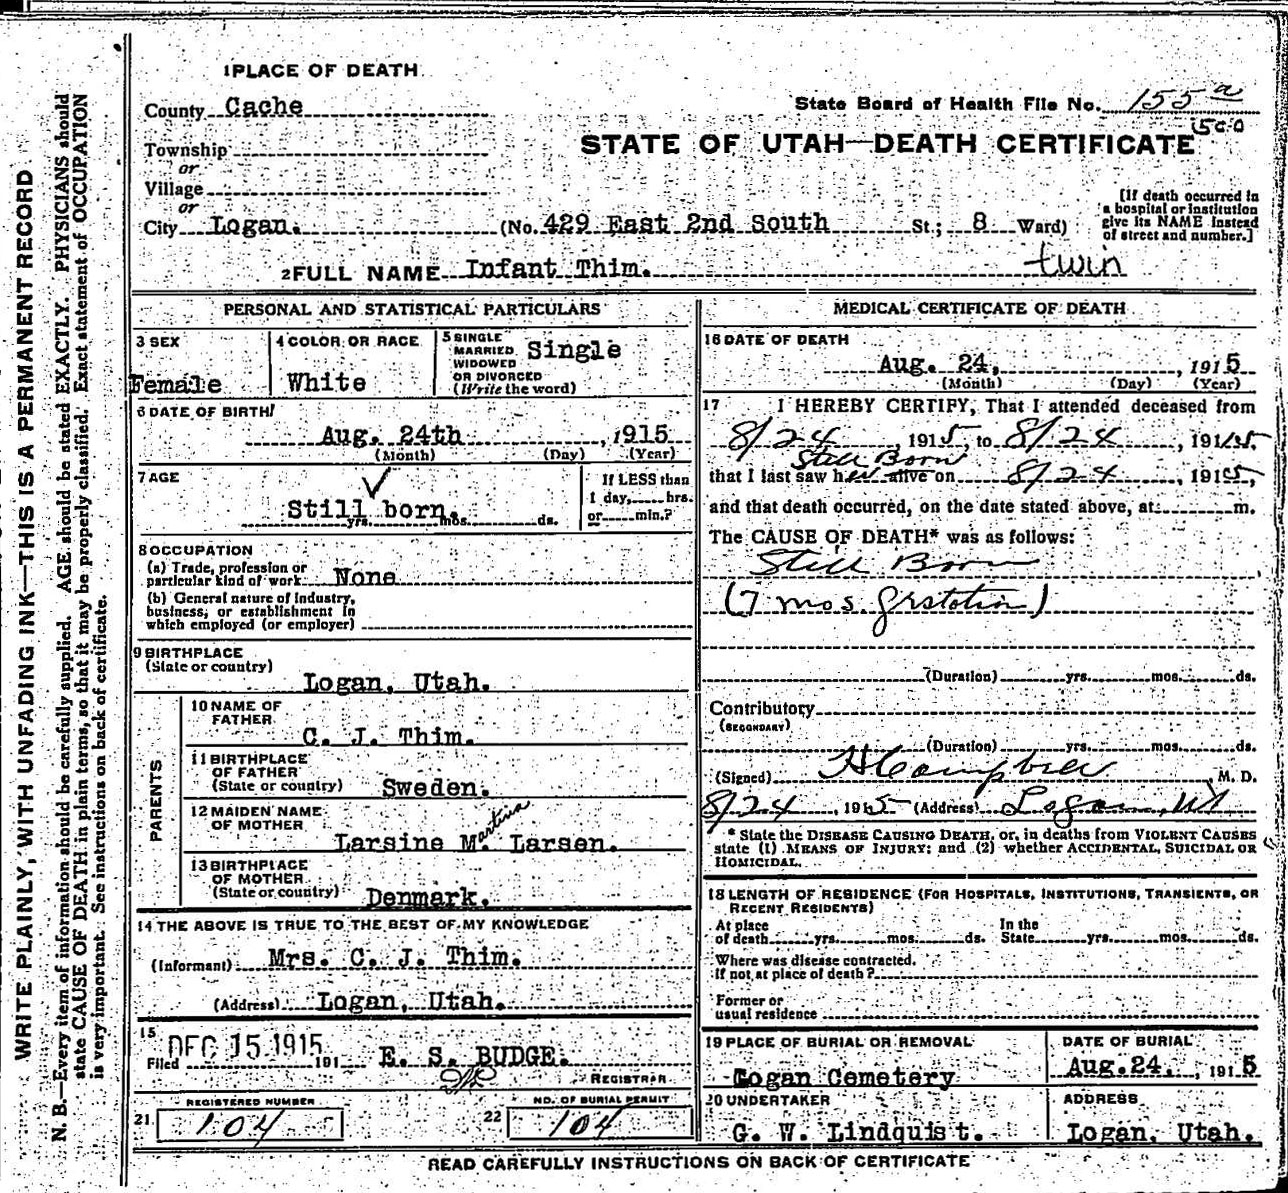 WRITE PLAINLY, WITH UNFADING INK—THIS IS A PERMANENT RECORD
N. B.—Every item of information should be carefully supplied. AGE should be stated EXACTLY. PHYSICIANS should
state CAUSE OF DEATH in plain terms, so that it may be properly classified. Exact statement of OCCUPATION
is very important. See instructions on back of certificate.
1 PLACE OF DEATH
County Cache
State Board of Health File No. 155 a
500
STATE OF UTAH—DEATH CERTIFICATE
Township
or
Village
or
City Logan. (No. 429 East 2nd South St.; 8 Ward)
[If death occurred in
a hospital or institution
give its NAME instead
of street and number.]
2 FULL NAME Infant Thim. twin
PERSONAL AND STATISTICAL PARTICULARS
3 SEX
Female
4 COLOR OR RACE
White
5 SINGLE
MARRIED
WIDOWED
OR DIVORCED
(Write the word)
Single
6 DATE OF BIRTH
Aug. 24th, 1915
(Month) (Day) (Year)
7 AGE
Still born.
yrs. mos. ds.
If LESS than
1 day, hrs.
or min.?
8 OCCUPATION
(a) Trade, profession or
particular kind of work None
(b) General nature of Industry,
business, or establishment in
which employed (or employer)
9 BIRTHPLACE
(State or country)
Logan, Utah.
PARENTS
10 NAME OF
FATHER
C. J. Thim.
11 BIRTHPLACE
OF FATHER
(State or country) Sweden.
12 MAIDEN NAME
OF MOTHER
Martina
Larsine M. Larsen.
13 BIRTHPLACE
OF MOTHER
(State or country) Denmark.
14 THE ABOVE IS TRUE TO THE BEST OF MY KNOWLEDGE
(Informant) Mrs. C. J. Thim.
(Address) Logan, Utah.
15
Filed DEC 15 1915 191 E. S. BUDGE.
REGISTRAR
REGISTERED NUMBER
21 104
NO. OF BURIAL PERMIT
22 104
MEDICAL CERTIFICATE OF DEATH
16 DATE OF DEATH
Aug. 24, , 1915
(Month) (Day) (Year)
17 I HEREBY CERTIFY, That I attended deceased from
8/24, 1915, to 8/24, 1915
Still Born
that I last saw her alive on 8/24 1915,
and that death occurred, on the date stated above, at m.
The CAUSE OF DEATH* was as follows:
Still Born
(7 mos. gestation)
(Duration) yrs. mos. ds.
Contributory
(SECONDARY)
(Duration) yrs. mos. ds.
(Signed) H Campbell, M. D.
8/24, 1915 (Address) Logan, Ut
* State the DISEASE CAUSING DEATH, or, in deaths from VIOLENT CAUSES
state (1) MEANS OF INJURY; and (2) whether ACCIDENTAL, SUICIDAL OR
HOMICIDAL.
18 LENGTH OF RESIDENCE (FOR HOSPITALS, INSTITUTIONS, TRANSIENTS, OR
RECENT RESIDENTS)
At place
of death yrs. mos. ds.
In the
State yrs. mos. ds.
Where was disease contracted,
If not at place of death?
Former or
usual residence
19 PLACE OF BURIAL OR REMOVAL
Logan Cemetery
DATE OF BURIAL
Aug. 24., 1915
20 UNDERTAKER
G. W. Lindquist.
ADDRESS
Logan, Utah.
READ CAREFULLY INSTRUCTIONS ON BACK OF CERTIFICATE